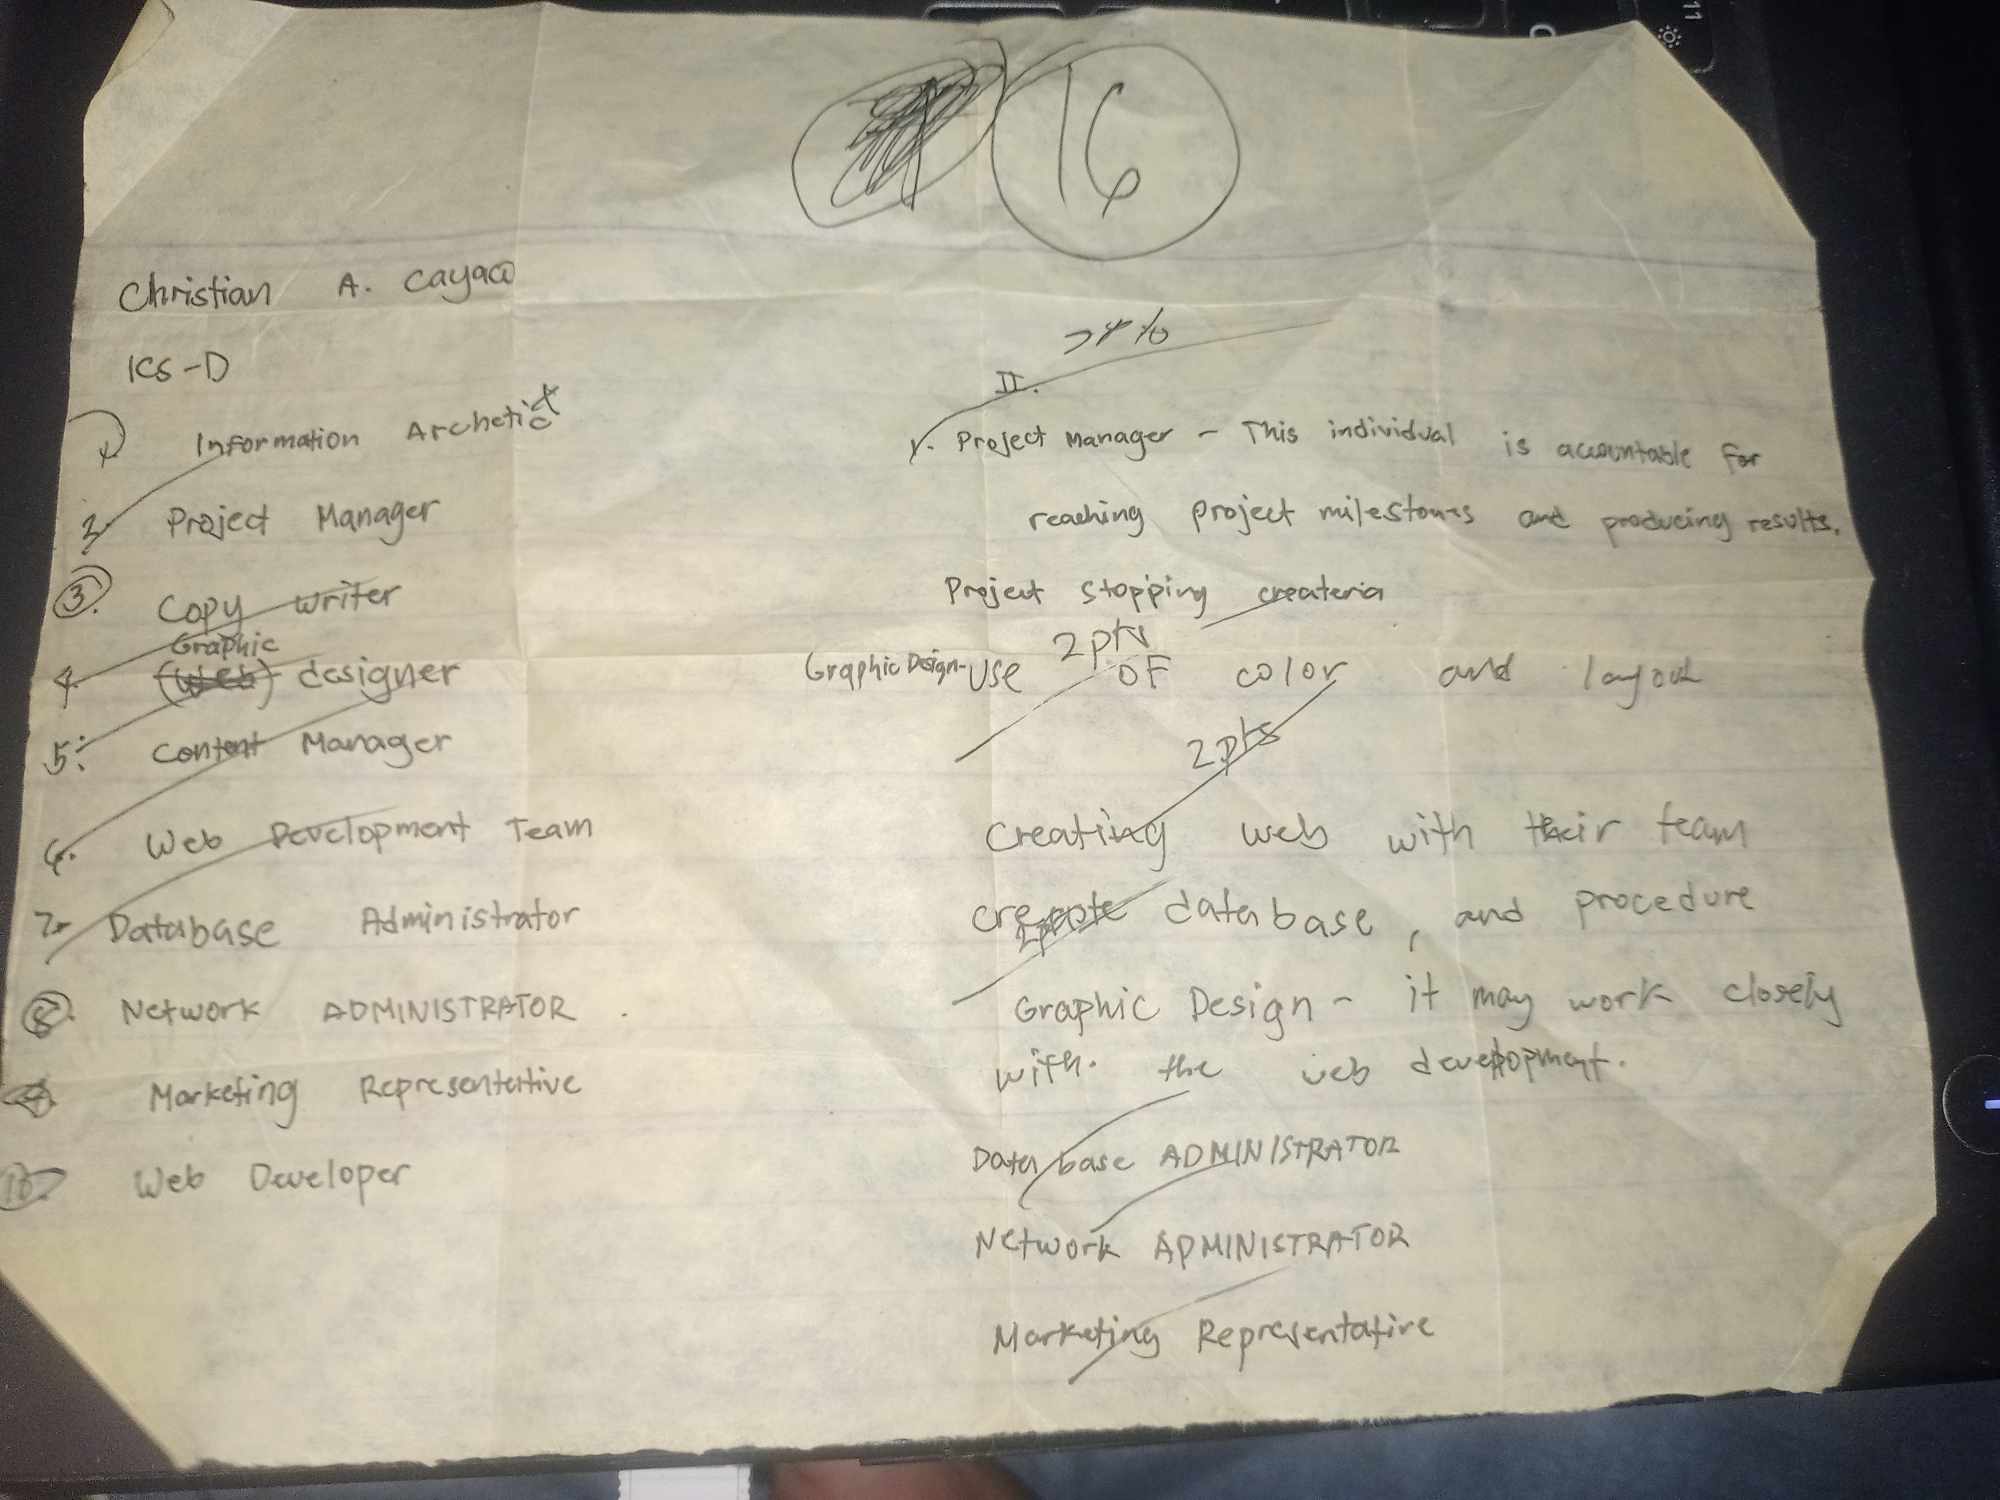 16
Christian A. Cayaco
1CS-D
1. Information Archetict
2. Project Manager
3. Copy writer
Graphic
4. (Web) designer
5. Content Manager
6. Web Development Team
7. Database Administrator
8. Network ADMINISTRATOR.
9. Marketing Representative
10. Web Developer
II.
1. Project Manager - This individual is accountable for
reaching project milestones and producing results.
Project stopping createria
2pts
Graphic Design- Use of color and layout
2pts
Creating web with their team
create database, and procedure
2pts
Graphic Design - it may work closely
with. the web development.
Data base ADMINISTRATOR
Network ADMINISTRATOR
Marketing Representative
11